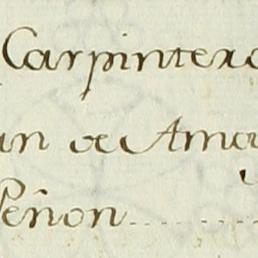 Carpintero
an de Amo
Peñon